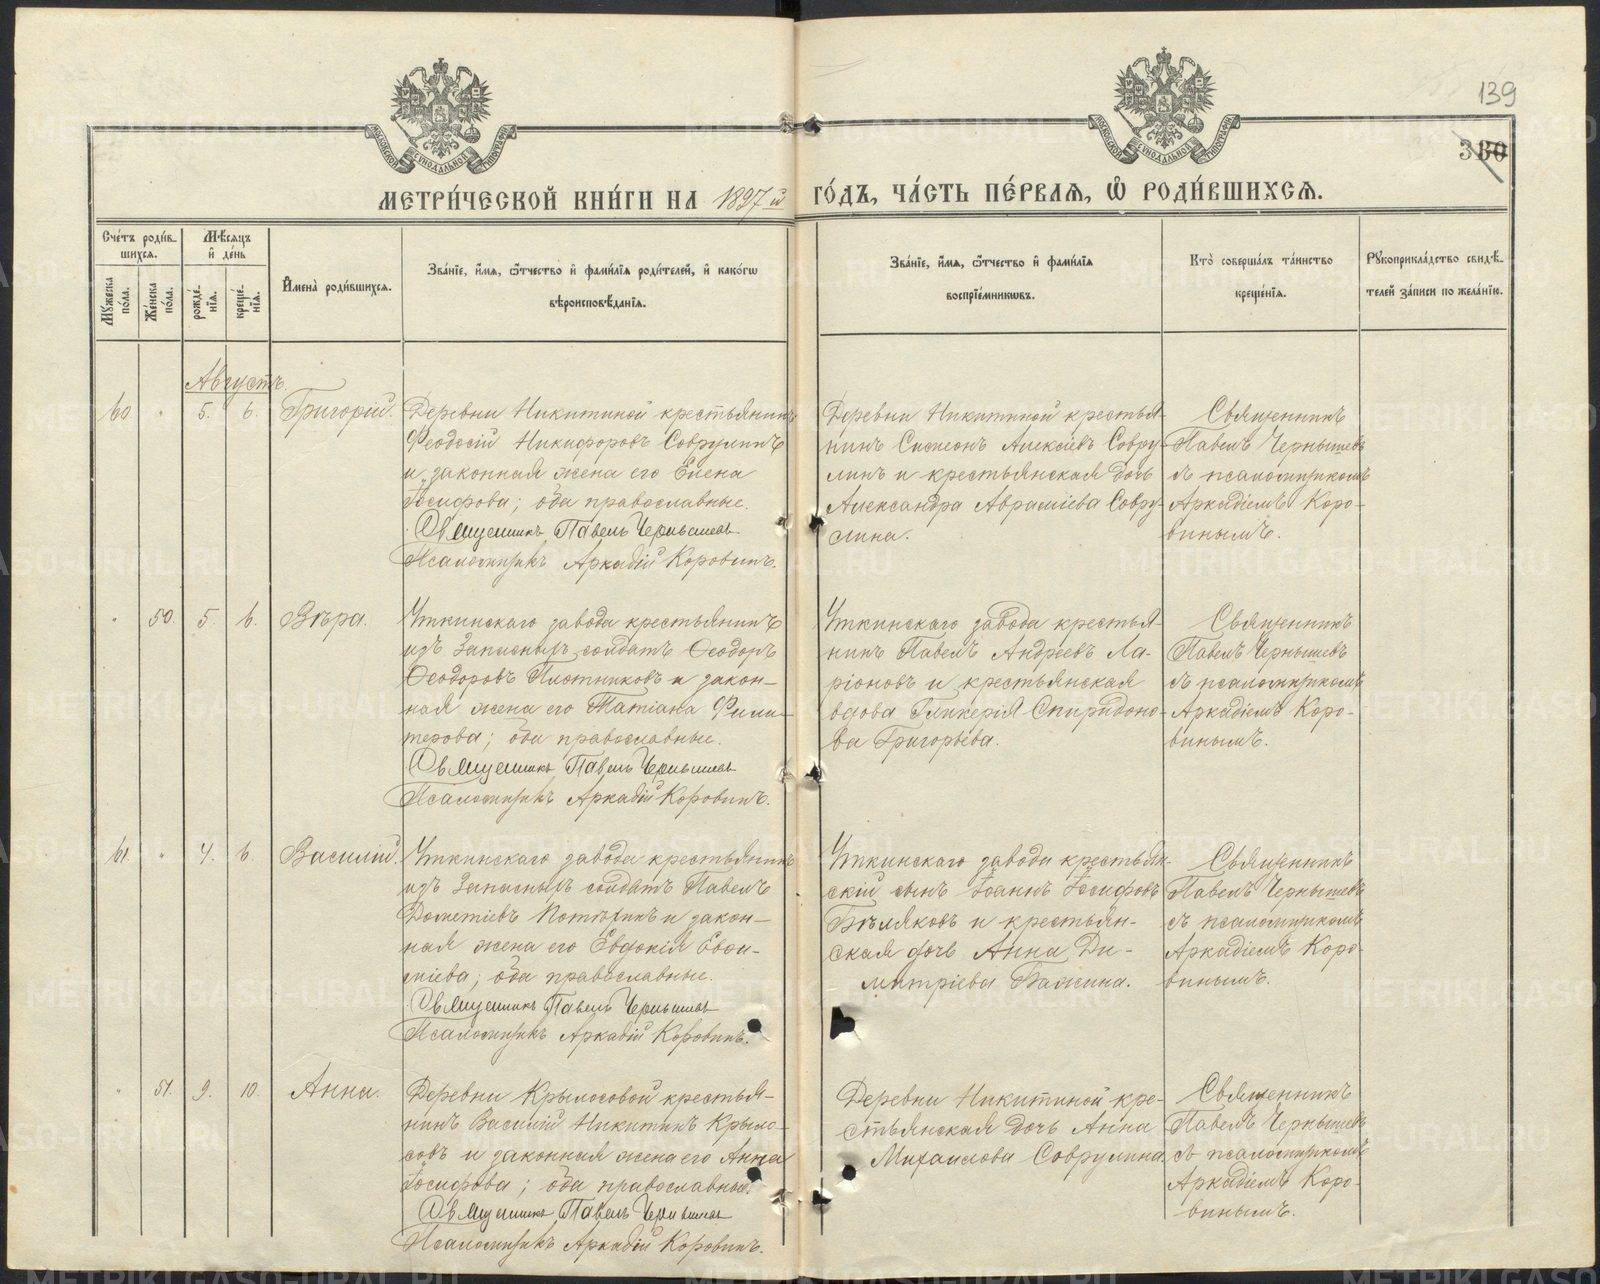 139
380
МОСКОВСКОЙ СѴНОДАЛЬНОЙ ТИПОГРАФІИ
МОСКОВСКОЙ СѴНОДАЛЬНОЙ ТИПОГРАФІИ
МЕТРИ́ЧЕСКОЙ КНИ́ГИ НА 1897й ГО́ДЪ, ЧА́СТЬ ПЕ́РВАЯ, Ѽ РОДИ́ВШИХСЯ.
Сче́тъ роди́в-
шихся.
Мꙋжеска по́ла.
Же́нска по́ла.
Мѣ́сяцъ и҆ де́нь
рожде́нїя.
креще́нїя.
И҆мена̀ роди́вшихся.
Зва́нїе, и҆́мя, ѻ҆́тчество и҆ фами́лїя роди́телей, и҆ како́гѡ
вѣроисповѣ́данїя.
Зва́нїе, и҆́мя, ѻ҆́тчество и҆ фами́лїя
воспрїе́мникѡвъ.
Кто̀ соверша́лъ та́инство
креще́нїя.
Рꙋкоприкла́дство свидѣ́-
телей за́писи по жела́нїю.
Августъ.
60 " 5. 6. Григорій.
Деревни Никитиной крестьянинъ
Феодосій Никифоровъ Соврулинъ
и законная жена его Елена
Іосифова; оба православные.
Священникъ Павелъ Чернышевъ
Псаломщикъ Аркадій Коровинъ.
Деревни Никитиной крестья-
нинъ Симеонъ Алексіевъ Совру-
линъ и крестьянская дочь
Александра Авраміева Совру-
лина.
Священникъ
Павелъ Чернышевъ
съ псаломщикомъ
Аркадіемъ Коро-
винымъ.
" 50. 5. 6. Вѣра.
Уткинскаго завода крестьянинъ
изъ запасныхъ солдатъ Ѳеодоръ
Ѳеодоровъ Плотниковъ и закон-
ная жена его Татіана Фили-
терова; оба православные.
Священникъ Павелъ Чернышевъ
Псаломщикъ Аркадій Коровинъ.
Уткинскаго завода крестья-
нинъ Павелъ Андреевъ Ла-
ріоновъ и крестьянская
вдова Гликерія Спиридоно-
ва Григорьева.
Священникъ
Павелъ Чернышевъ
съ псаломщикомъ
Аркадіемъ Коро-
винымъ.
61. " 4. 6. Василій.
Уткинскаго завода крестьянинъ
изъ запасныхъ солдатъ Павелъ
Дометіевъ Потѣхинъ и закон-
ная жена его Евдокія Евѳи-
міева; оба православные.
Священникъ Павелъ Чернышевъ
Псаломщикъ Аркадій Коровинъ.
Уткинскаго завода крестьян-
скій сынъ Іоаннъ Іосифовъ
Бѣляковъ и крестьян-
ская дочь Анна Ди-
митріева Бажина.
Священникъ
Павелъ Чернышевъ
съ псаломщикомъ
Аркадіемъ Коро-
винымъ.
" 51. 9. 10. Анна.
Деревни Крылосовой крестья-
нинъ Василій Никитинъ Крыло-
совъ и законная жена его Анна
Іосифова; оба православные.
Священникъ Павелъ Чернышевъ
Псаломщикъ Аркадій Коровинъ.
Деревни Никитиной кре-
стьянская дочь Анна
Михаилова Соврулина.
Священникъ
Павелъ Чернышевъ
съ псаломщикомъ
Аркадіемъ Коро-
винымъ.